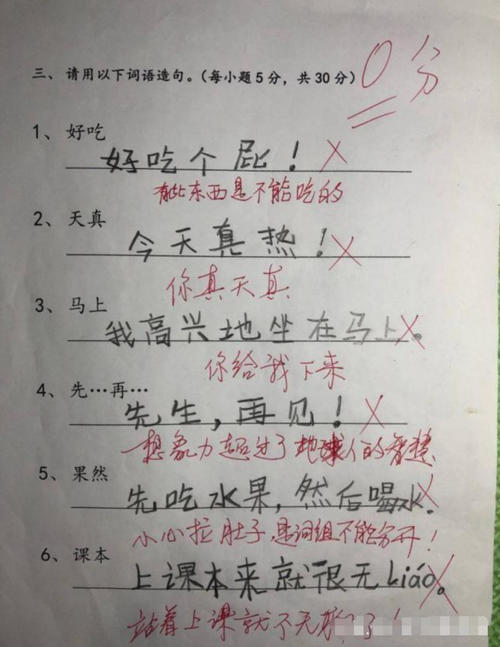 0分
三、请用以下词语造句。（每小题5分，共30分）
1、好吃
好吃个屁！
有些东西是不能吃的
2、天真
今天真热！
你真天真
3、马上
我高兴地坐在马上。
你给我下来
4、先…再…
先生，再见！
想象力超过了地球人的智慧
5、果然
先吃水果，然后喝水。
小心拉肚子，是词组不能分开！
6、课本
上课本来就很无liáo。
站着上课就不无聊了！